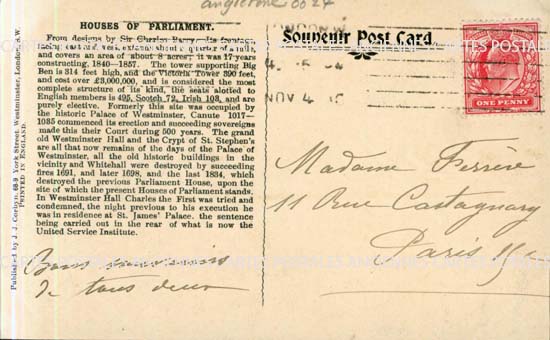 angleterre 0027
HOUSES OF PARLIAMENT.
From designs by Sir Charles Barry. Its frontage,
facing east and west, extends about a quarter of a mile,
and covers an area of about 8 acres; it was 17 years
constructing, 1840—1857. The tower supporting Big
Ben is 314 feet high, and the Victoria Tower 390 feet,
and cost over £3,000,000, and is considered the most
complete structure of its kind, the seats alotted to
English members is 495, Scotch 72, Irish 103, and are
purely elective. Formerly this site was occupied by
the historic Palace of Westminster, Canute 1017—
1035 commenced its erection and succeeding sovereigns
made this their Court during 500 years. The grand
old Westminster Hall and the Crypt of St. Stephen's
are all that now remains of the days of the Palace of
Westminster, all the old historic buildings in the
vicinity and Whitehall were destroyed by succeeding
fires 1691, and later 1698, and the last 1834, which
destroyed the previous Parliament House, upon the
site of which the present Houses of Parliament stands.
In Westminster Hall Charles the First was tried and
condemned, the night previous to his execution he
was in residence at St. James' Palace. the sentence
being carried out in the rear of what is now the
United Service Institute.
Bons souvenirs
de tous deux
Published by J. J. Corbyn, 68-9 York Street, Westminster, London, S.W.
PRINTED IN ENGLAND.
Souvenir Post Card.
NOV 4
ONE PENNY
Madame Ferrère
11 Rue Castagnary
Paris
CARTES POSTALES ANCIENNES